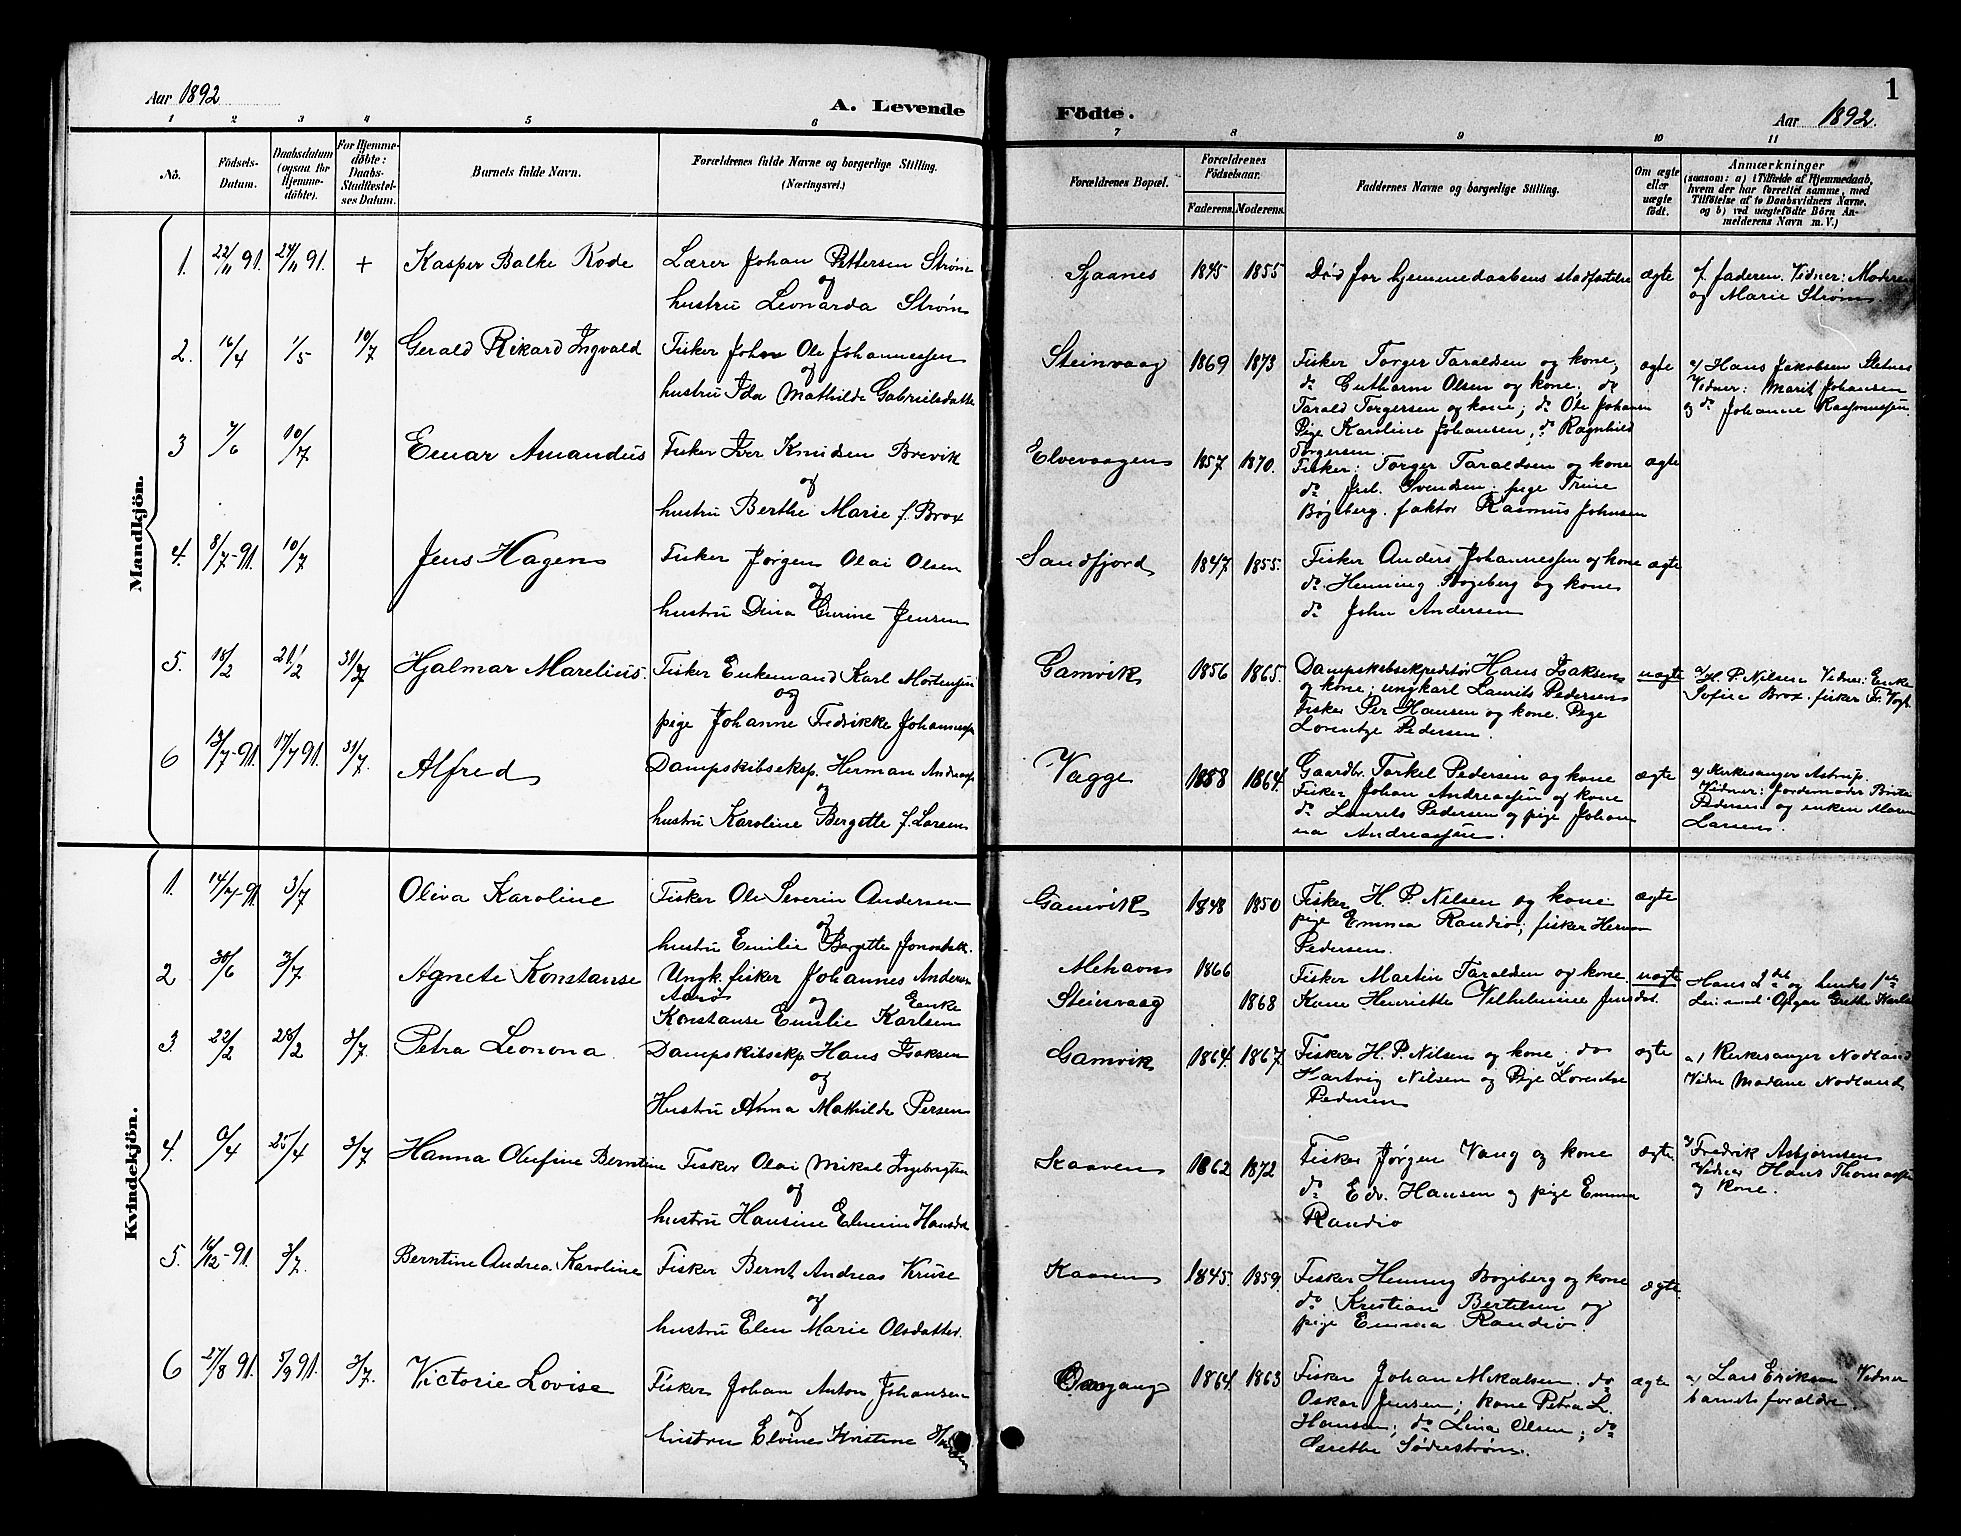 Aar 1892
A. Levende
Födte.
Aar 1892.
1
1 2 3 4 5 6 7 8 9 10 11
No.
Födsels-
Datum.
Daabsdatum
(ogsaa for
Hjemme-
døbte).
For Hjemme-
døbte:
Daabs-
Stadfæstel-
ses Datum.
Barnets fulde Navn.
Forældrenes fulde Navne og borgerlige Stilling.
(Næringsvei.)
Forældrenes Bopæl.
Forældrenes
Födselsaar.
Faderens. Moderens.
Faddernes Navne og borgerlige Stilling.
Om ægte
eller
uægte
födt.
Anmærkninger
(saasom: a) i Tilfælde af Hjemmedaab,
hvem der har forrettet samme, med
Tilföielse af to Daabsvidners Navne,
og b) ved uægtefödte Börn An-
melderens Navn m. V.)
Mandkjön.
1. 22/11 91. 24/11 91. + Kasper Balke Rode
Lærer Johan Pettersen Strøm
og
hustru Leonarda Strøm
Sjaanes 1845 1855 Död før hjemmedaabens stadfæstelse ægte
af faderen. Vidner: Moderen
og Marie Strøm.
2. 16/4 1/5 10/7 Gerald Rikard Ingvald
Fisker John Ole Johannessen
og
hustru Ida Mathilde Gabrielsdatter
Steinvaag 1869 1873
Fisker Torger Taraldsen og kone,
do Guthorm Olsen og kone; do
Tarald Torgersen og kone; do Ole Johansen
Pige Karoline Johansen, do Ragnhild
Torgersen.
ægte
a/ Hans Jakobsen Stetnes
Vidner: Marit Johansen
og do Johanne Rasmussen
3 7/6 10/7 Einar Amandus
Fisker Iver Knudsen Brevik
og
hustru Berthe Marie f. Brox
Elvevaagen 1857. 1870.
Fisker: Torger Taraldsen og kone
do Joh. Svendsen. pige Trine
Bøgeberg. faktor Rasmus Johnsen
ægte
4. 8/7-91. 10/7 Jens Hagen
Fisker Jørgen Olai Olsen
og
hustru Dina Gurine Jensen
Sandfjord 1847. 1855.
Fisker Anders Johannessen og kone
do Henning Bogeberg og kone
do John Andersen
ægte
5. 18/2 21/2 31/7 Hjalmar Marelius.
Fisker Enkemand Karl Mortensen
og
pige Johanne Fredrikke Johannessen
Gamvik 1856 1865.
Dampskibsekspeditør Hans Isaksen
og kone; ungkarl Laurits Pedersen
Fisker Per Hansen og kone. Pige
Lorentze Pedersen.
uægte
a/ H. P. Nilsen Vidner: Enke
Sofie Brox. fisker Fr. Vogt
6 13/7-91. 17/7 91. 31/7. Alfred
Dampskibseksp. Herman Andreassen
og
hustru Karoline Bergette f. Larsen
Vagge 1888 1864.
Gaardbr. Torkel Pedersen og kone
Fisker Johan Andreassen og kone
do Laurits Pedersen og pige Johan
na Andreassen.
ægte
a/ Kirkesanger Astrup.
Vidner: Jordemoder Berte
Pedersen og enken Maren
Larsen.
Kvindekjön.
1. 14/7-91. 3/7 Oliva Karoline
Fisker Ole Severin Andersen
og
hustru Emilie Bergette Jonasdatt.
Gamvik 1848 1850
Fisker H. P. Nilsen og kone
pige Emma Randio; fisker Herman
Pedersen.
ægte
2 30/6 3/7 Agnete Konstanse
Ungk. fisker Johannes Andersen
Aarø og Enke
Konstanse Emilie Karlsen
Mehavn 1866
Steinvaag 1868
Fisker Martin Taraldsen og kone
Kone Henriette Vilhelmine Jensdat.
uægte
Hans 2det og hendes 1ste
Leiermaal Opgav Grethe Karlsen
3. 22/2 28/2 3/7. Petra Leonona
Dampskibseksp. Hans Isaksen
og
Hustru Anna Mathilde Persen
Gamvik 1864. 1867.
Fisker H. P. Nilsen og kone; do
Hartvig Nilsen og Pige Lorentse
Pedersen
ægte
a/ Kirkesanger Nodland
Vidne Madame Nodland
4. 6/4 25/4 3/7 Hanna Olufine Berntine
Fisker Olai Mikal Ingebrigtsen
og
hustru Hansine Elmine Hansdat
Kaaven 1862 1872
Fisker Jørgen Vang og kone
do Edv. Hansen og pige Emma
Randio
ægte.
a/ Fredrik Asbjørnsen
Vidner Hans Thomassen
og kone.
5. 16/12-91. 3/7. Berntine Andrea Karoline
Fisker Bernt Andreas Kruse
og
hustru Elen Marie Olsdatter.
Kaaven 1845. 1859.
Fisker Henning Bogeberg og kone
do Kristian Bertelsen og
pige Emma Randio.
ægte.
6 27/8 91. 5/9 91. 3/7. Victorie Lovise
Fisker Johan Anton Johansen
og
hustru Elvine Kristine
Oksegang 1864. 1863
Fisker Johan Mikalsen. do
Oskar Jensen; kone Petra L.
Hansen; do Lina Olsen; do
Grethe Söderström.
ægte
a/ Lars Eriksen Vidner
barnets forældre.